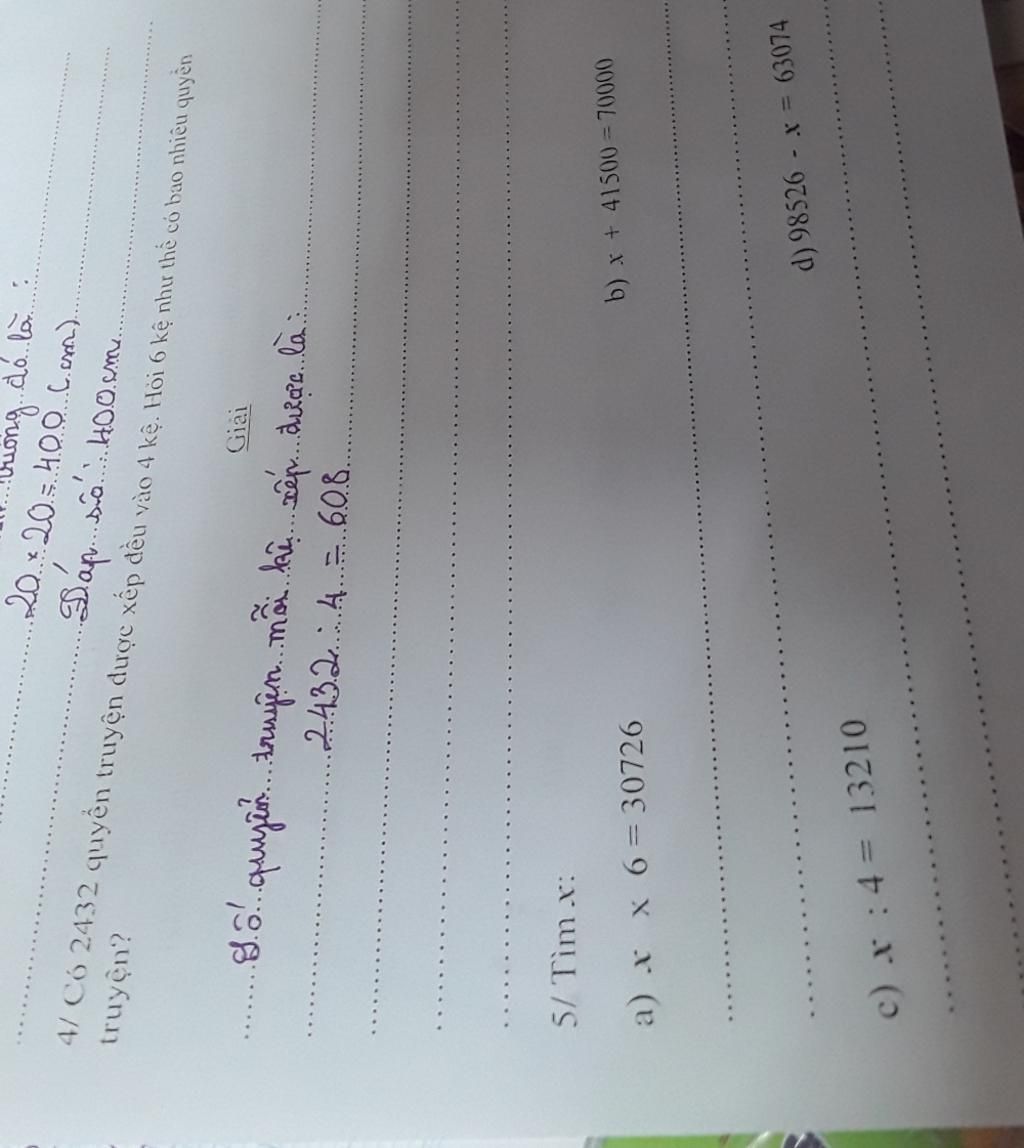 vuông đó là :
20 × 20 = 400 (cm)
Đáp số : 400 cm
4/ Có 2432 quyển truyện được xếp đều vào 4 kệ. Hỏi 6 kệ như thế có bao nhiêu quyển
truyện?
Giải
Số quyển truyện mỗi kệ xếp được là :
2432 : 4 = 608
5/ Tìm x:
a) x x 6 = 30726
b) x + 41500 = 70000
c) x : 4 = 13210
d) 98526 - x = 63074